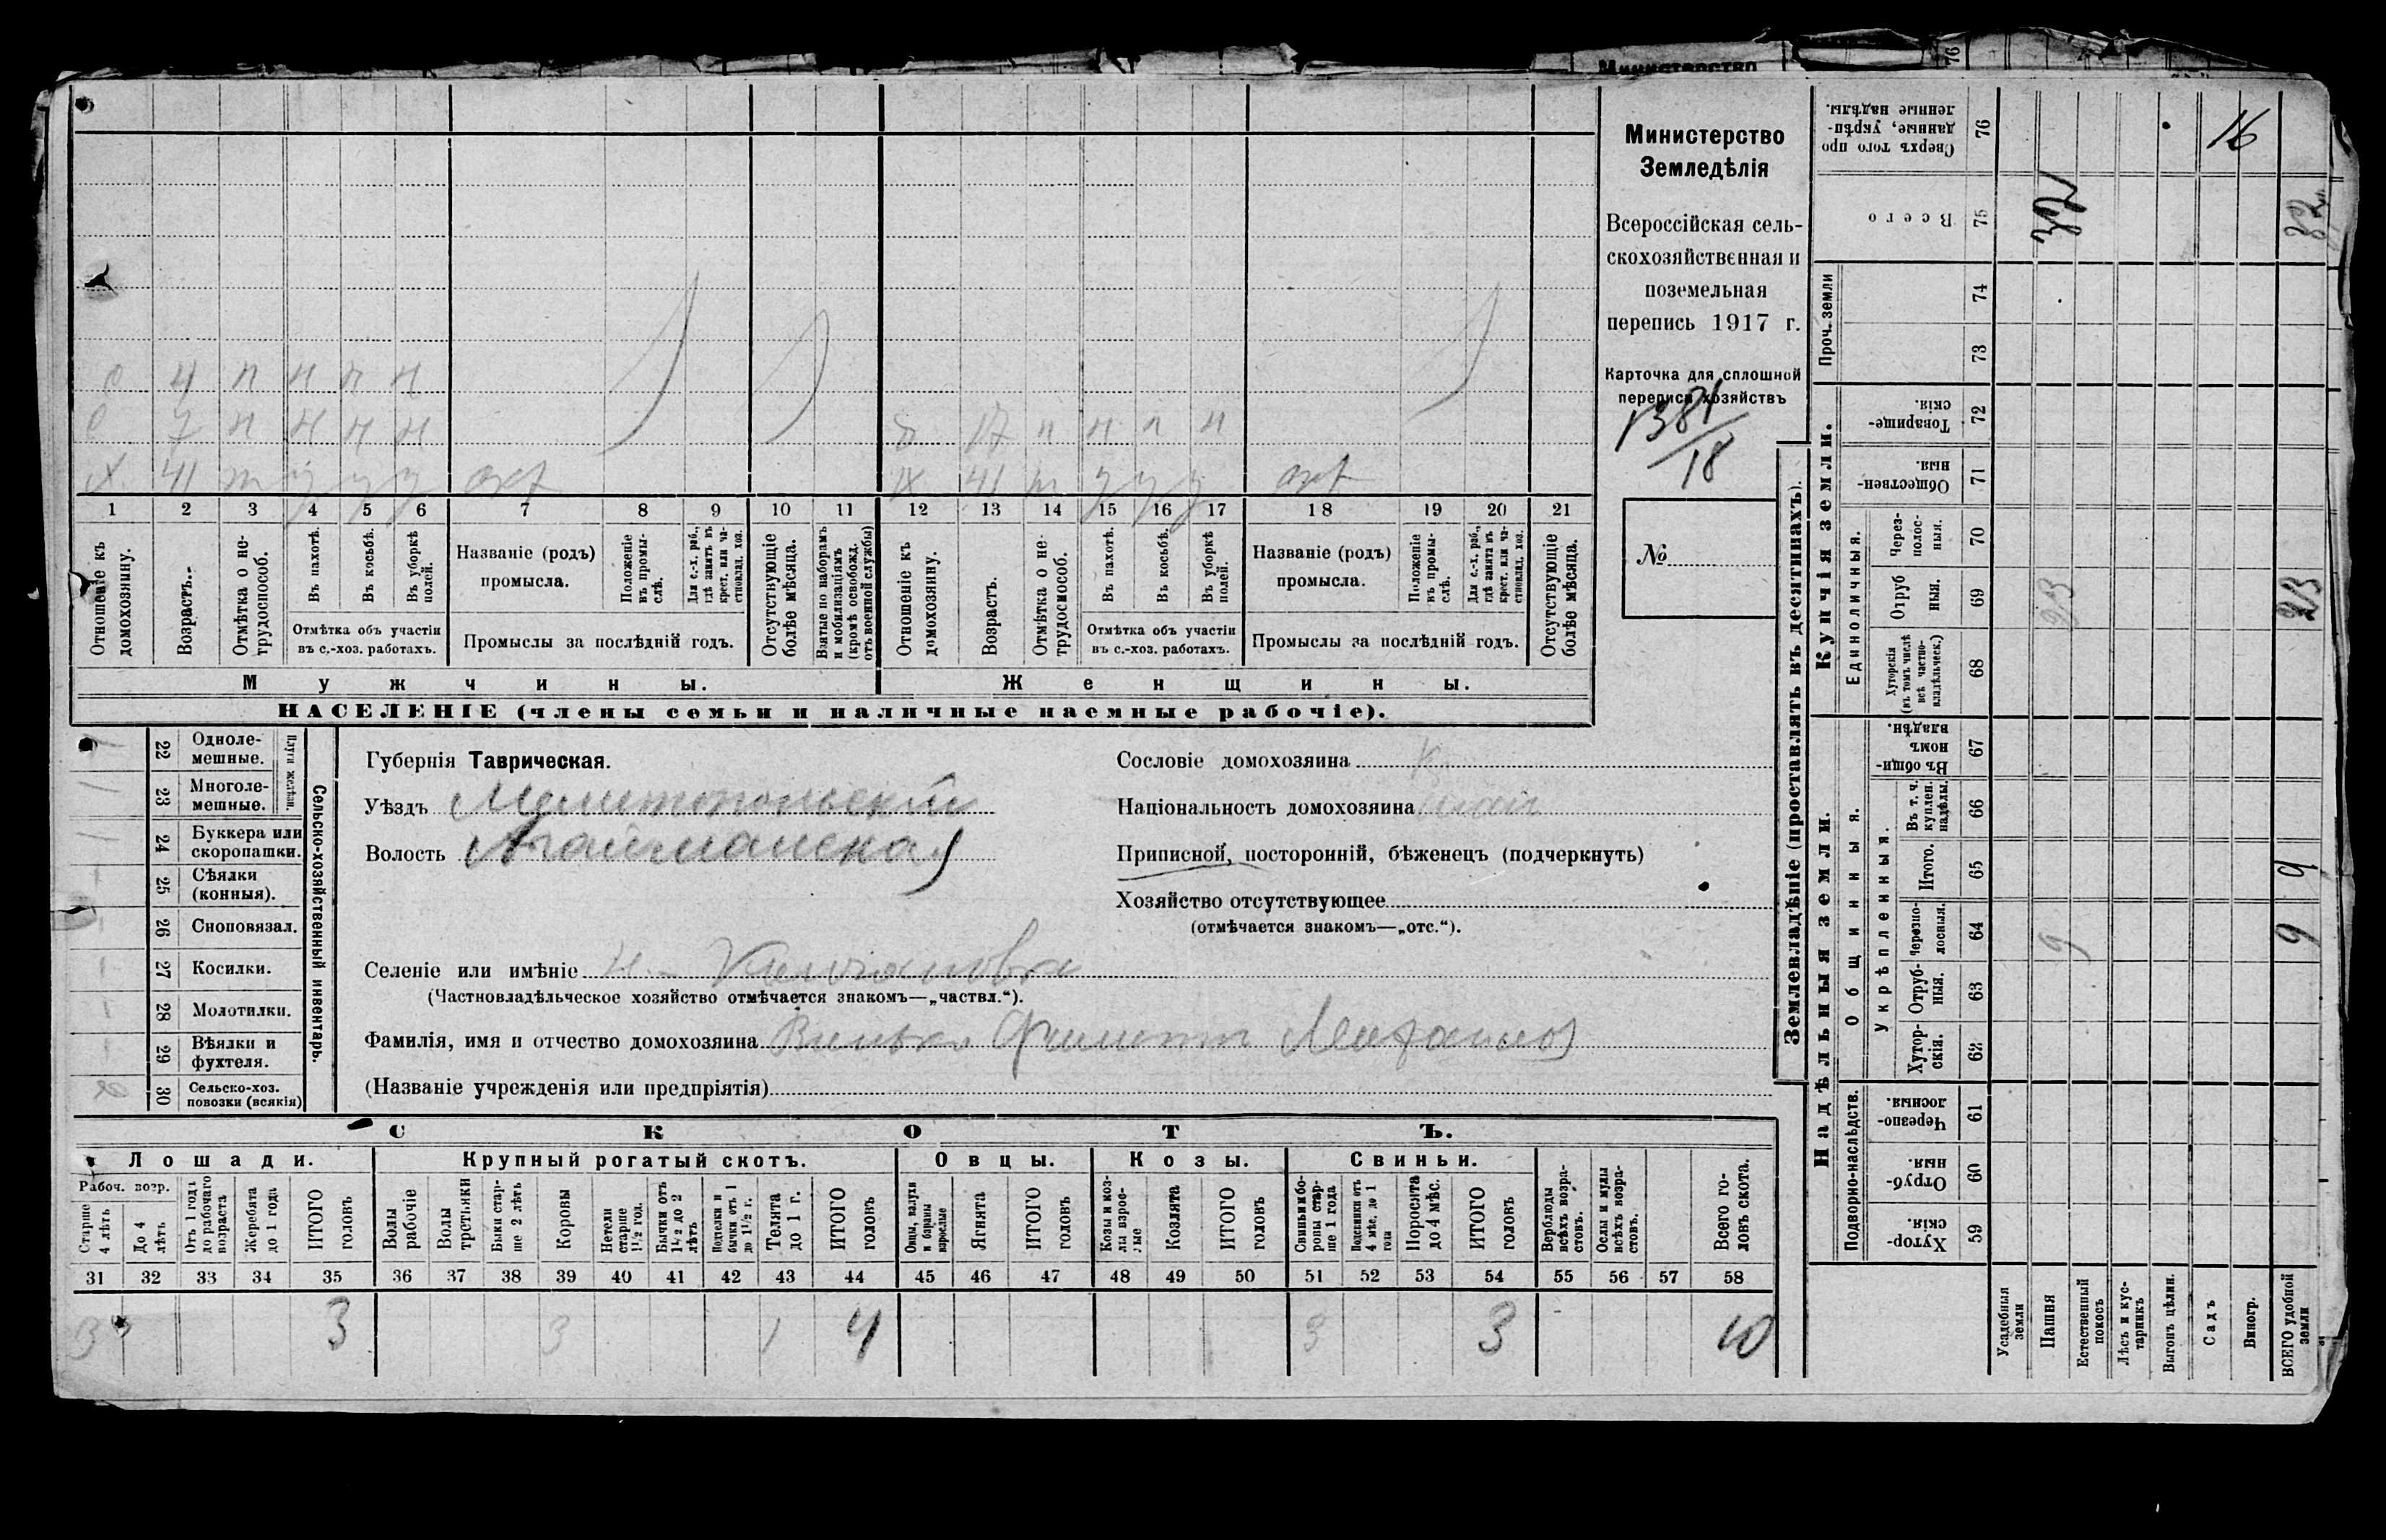 Министерство
76
о 4 н н н н
с 7 н н н н
х 41 т у у у
17 н н н н
41 т у у у
1 2 3 4 5 6 7 8 9 10 11 12 13 14 15 16 17 18 19 20 21
Отношеніе къ домохозяину.
Возрастъ.
Отмѣтка о не-трудоспособ.
Въ пахотѣ.
Въ косьбѣ.
Въ уборкѣ полей.
Отмѣтка объ участіи
въ с.-хоз. работахъ.
Названіе (родъ)
промысла.
Положеніе въ промы-слѣ.
Для с.-х. раб., гдѣ занятъ въ крест. или ча-стновлад. хоз.
Промыслы за послѣдній годъ.
Отсутствующіе болѣе мѣсяца.
Взятые по наборамъ и мобилизаціямъ (кромѣ освобожд. отъ военной службы)
Отношеніе къ домохозяину.
Возрастъ.
Отмѣтка о не-трудоспособ.
Въ пахотѣ.
Въ косьбѣ.
Въ уборкѣ полей.
Отмѣтка объ участіи
въ с.-хоз. работахъ.
Названіе (родъ)
промысла.
Положеніе въ промы-слѣ.
Для с.-х. раб., гдѣ занята въ крест. или ча-стновлад. хоз.
Промыслы за послѣдній годъ.
Отсутствующіе болѣе мѣсяца.
Мужчины.
Женщины.
НАСЕЛЕНІЕ (члены семьи и наличные наемные рабочіе).
Министерство
Земледѣлія
Всероссійская сель-
скохозяйственная и
поземельная
перепись 1917 г.
Карточка для сплошной
переписи хозяйствъ
1381/18
№
Сельско-хозяйственный инвентарь.
Плуги желѣзн.
22 Одноле-
мешные.
23 Многоле-
мешные.
24 Буккера или
скоропашки.
25 Сѣялки
(конныя).
26 Сноповязал.
27 Косилки.
28 Молотилки.
29 Вѣялки и
фухтеля.
30 Сельско-хоз.
повозки (всякія)
Губернія Таврическая.
Уѣздъ Мелитопольскій
Волость Агайманская
Селеніе или имѣніе
(Частновладѣльческое хозяйство отмѣчается знакомъ—„частвл.“).
Фамилія, имя и отчество домохозяина Филиппъ
(Названіе учрежденія или предпріятія)
Сословіе домохозяина К
Національность домохозяина
Приписной, посторонній, бѣженецъ (подчеркнуть)
Хозяйство отсутствующее
(отмѣчается знакомъ—„отс.“).
СКОТЪ.
Лошади.
Крупный рогатый скотъ.
Овцы.
Козы.
Свиньи.
Рабоч. возр.
Старше 4 лѣтъ
До 4 лѣтъ
Отъ 1 года до рабочаго возраста
Жеребята до 1 года
ИТОГО головъ
Волы рабочіе
Волы третьяки
Быки стар-ше 2 лѣтъ
Коровы
Нетели старше 1½ год.
Бычки отъ 1½ до 2 лѣтъ
Подтелки и бычки отъ 1 до 1½ г.
Телята до 1 г.
ИТОГО головъ
Овцы, валухи и бараны взрослые
Ягнята
ИТОГО головъ
Козы и коз-лы взрос-лые
Козлята
ИТОГО головъ
Свиньи и бо-ровы стар-ше 1 года
Подсвинки отъ 4 мѣс. до 1 года
Поросята до 4 мѣс.
ИТОГО головъ
Верблюды всѣхъ возра-стовъ.
Ослы и мулы всѣхъ возра-стовъ.
Всего го-ловъ скота.
31 32 33 34 35 36 37 38 39 40 41 42 43 44 45 46 47 48 49 50 51 52 53 54 55 56 57 58
3 3 3 1 4 3 3 10
Землевладѣніе (проставлять въ десятинахъ).
Надѣльныя земли.
Купчія земли.
Проч. земли
Подворно-наслѣдств.
Общинныя.
Укрѣпленныя.
Единоличныя.
Сверхъ того про-данные, укрѣп-ленные надѣлы. 76
Всего 75
74
73
Товарище-скія. 72
Обществен-ныя. 71
Через-полос-ныя. 70
Отруб-ныя. 69
Хуторскія (въ томъ числѣ всѣ частно-владѣльческ.) 68
Въ общин-номъ владѣн. 67
Въ т. ч. куплен. надѣлы. 66
Итого. 65
Черезпо-лосныя. 64
Отруб-ныя. 63
Хутор-скія. 62
Черезпо-лосныя. 61
Отруб-ныя. 60
Хутор-скія. 59
Усадебныя земли
Пашня
Естественный покосъ
Лѣсъ и кус-тарникъ
Выгонъ цѣлин.
Садъ
Виногр.
ВСЕГО удобной земли
16
32
32
23
23
9
9
9